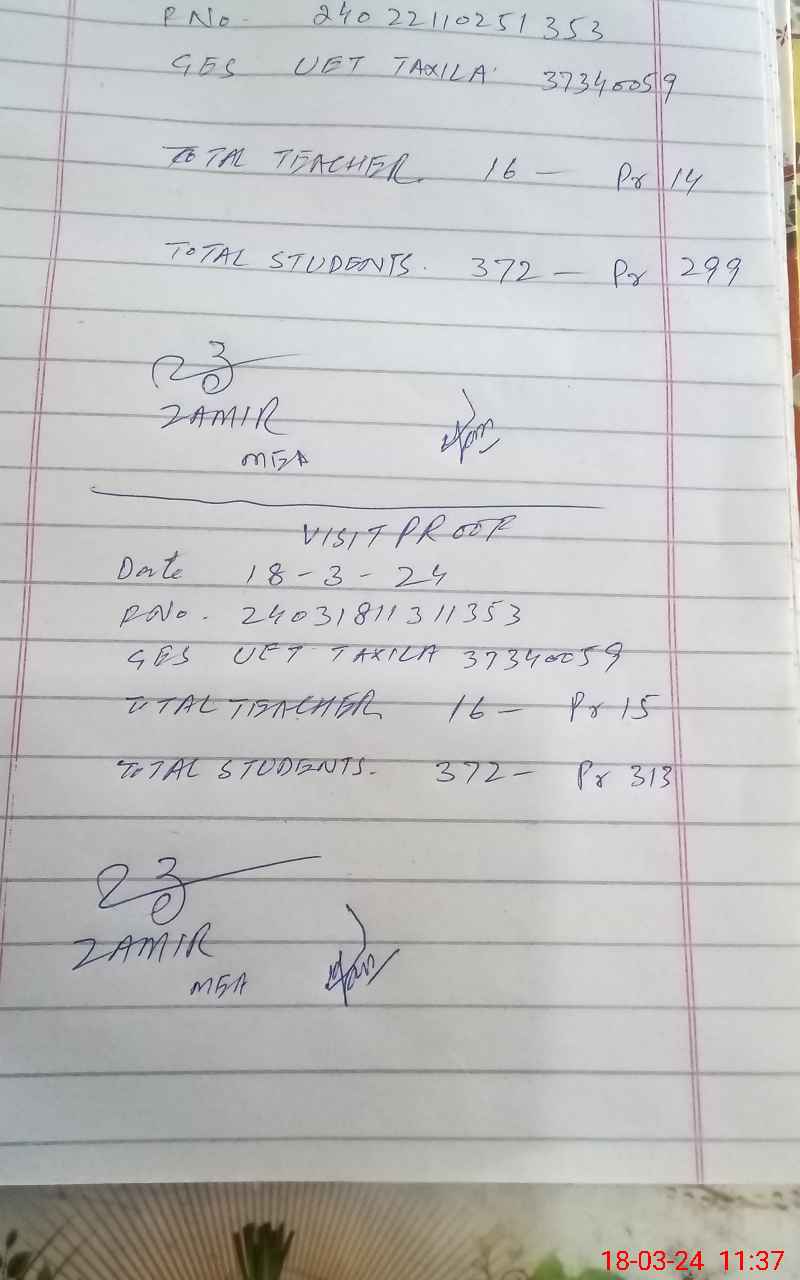 P No. 24022110251353
GES UET TAXILA 37340059
TOTAL TEACHER. 16 — Pr 14
TOTAL STUDENTS. 372 — Pr 299
ZAMIR
MEA
VISIT PROOF
Date 18-3-24
P No. 24031811311353
GES UET TAXILA 37340059
TOTAL TEACHER 16 — Pr 15
TOTAL STUDENTS. 372 — Pr 313
ZAMIR
MEA
18-03-24 11:37